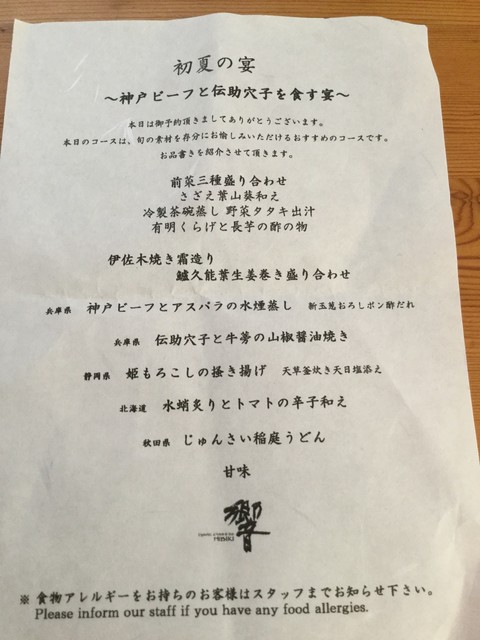 初夏の宴
～神戸ビーフと伝助穴子を食す宴～
本日は御予約頂きましてありがとうございます。
本日のコースは、旬の素材を存分にお愉しみいただけるおすすめのコースです。
お品書きを紹介させて頂きます。
前菜三種盛り合わせ
さざえ葉山葵和え
冷製茶碗蒸し 野菜タタキ出汁
有明くらげと長芋の酢の物
伊佐木焼き霜造り
鱸久能葉生姜巻き盛り合わせ
兵庫県 神戸ビーフとアスパラの水煙蒸し 新玉葱おろしポン酢だれ
兵庫県 伝助穴子と牛蒡の山椒醤油焼き
静岡県 姫もろこしの掻き揚げ 天草釜炊き天日塩添え
北海道 水蛸炙りとトマトの辛子和え
秋田県 じゅんさい稲庭うどん
甘味
響
HIBIKI
※ 食物アレルギーをお持ちのお客様はスタッフまでお知らせ下さい。
Please inform our staff if you have any food allergies.